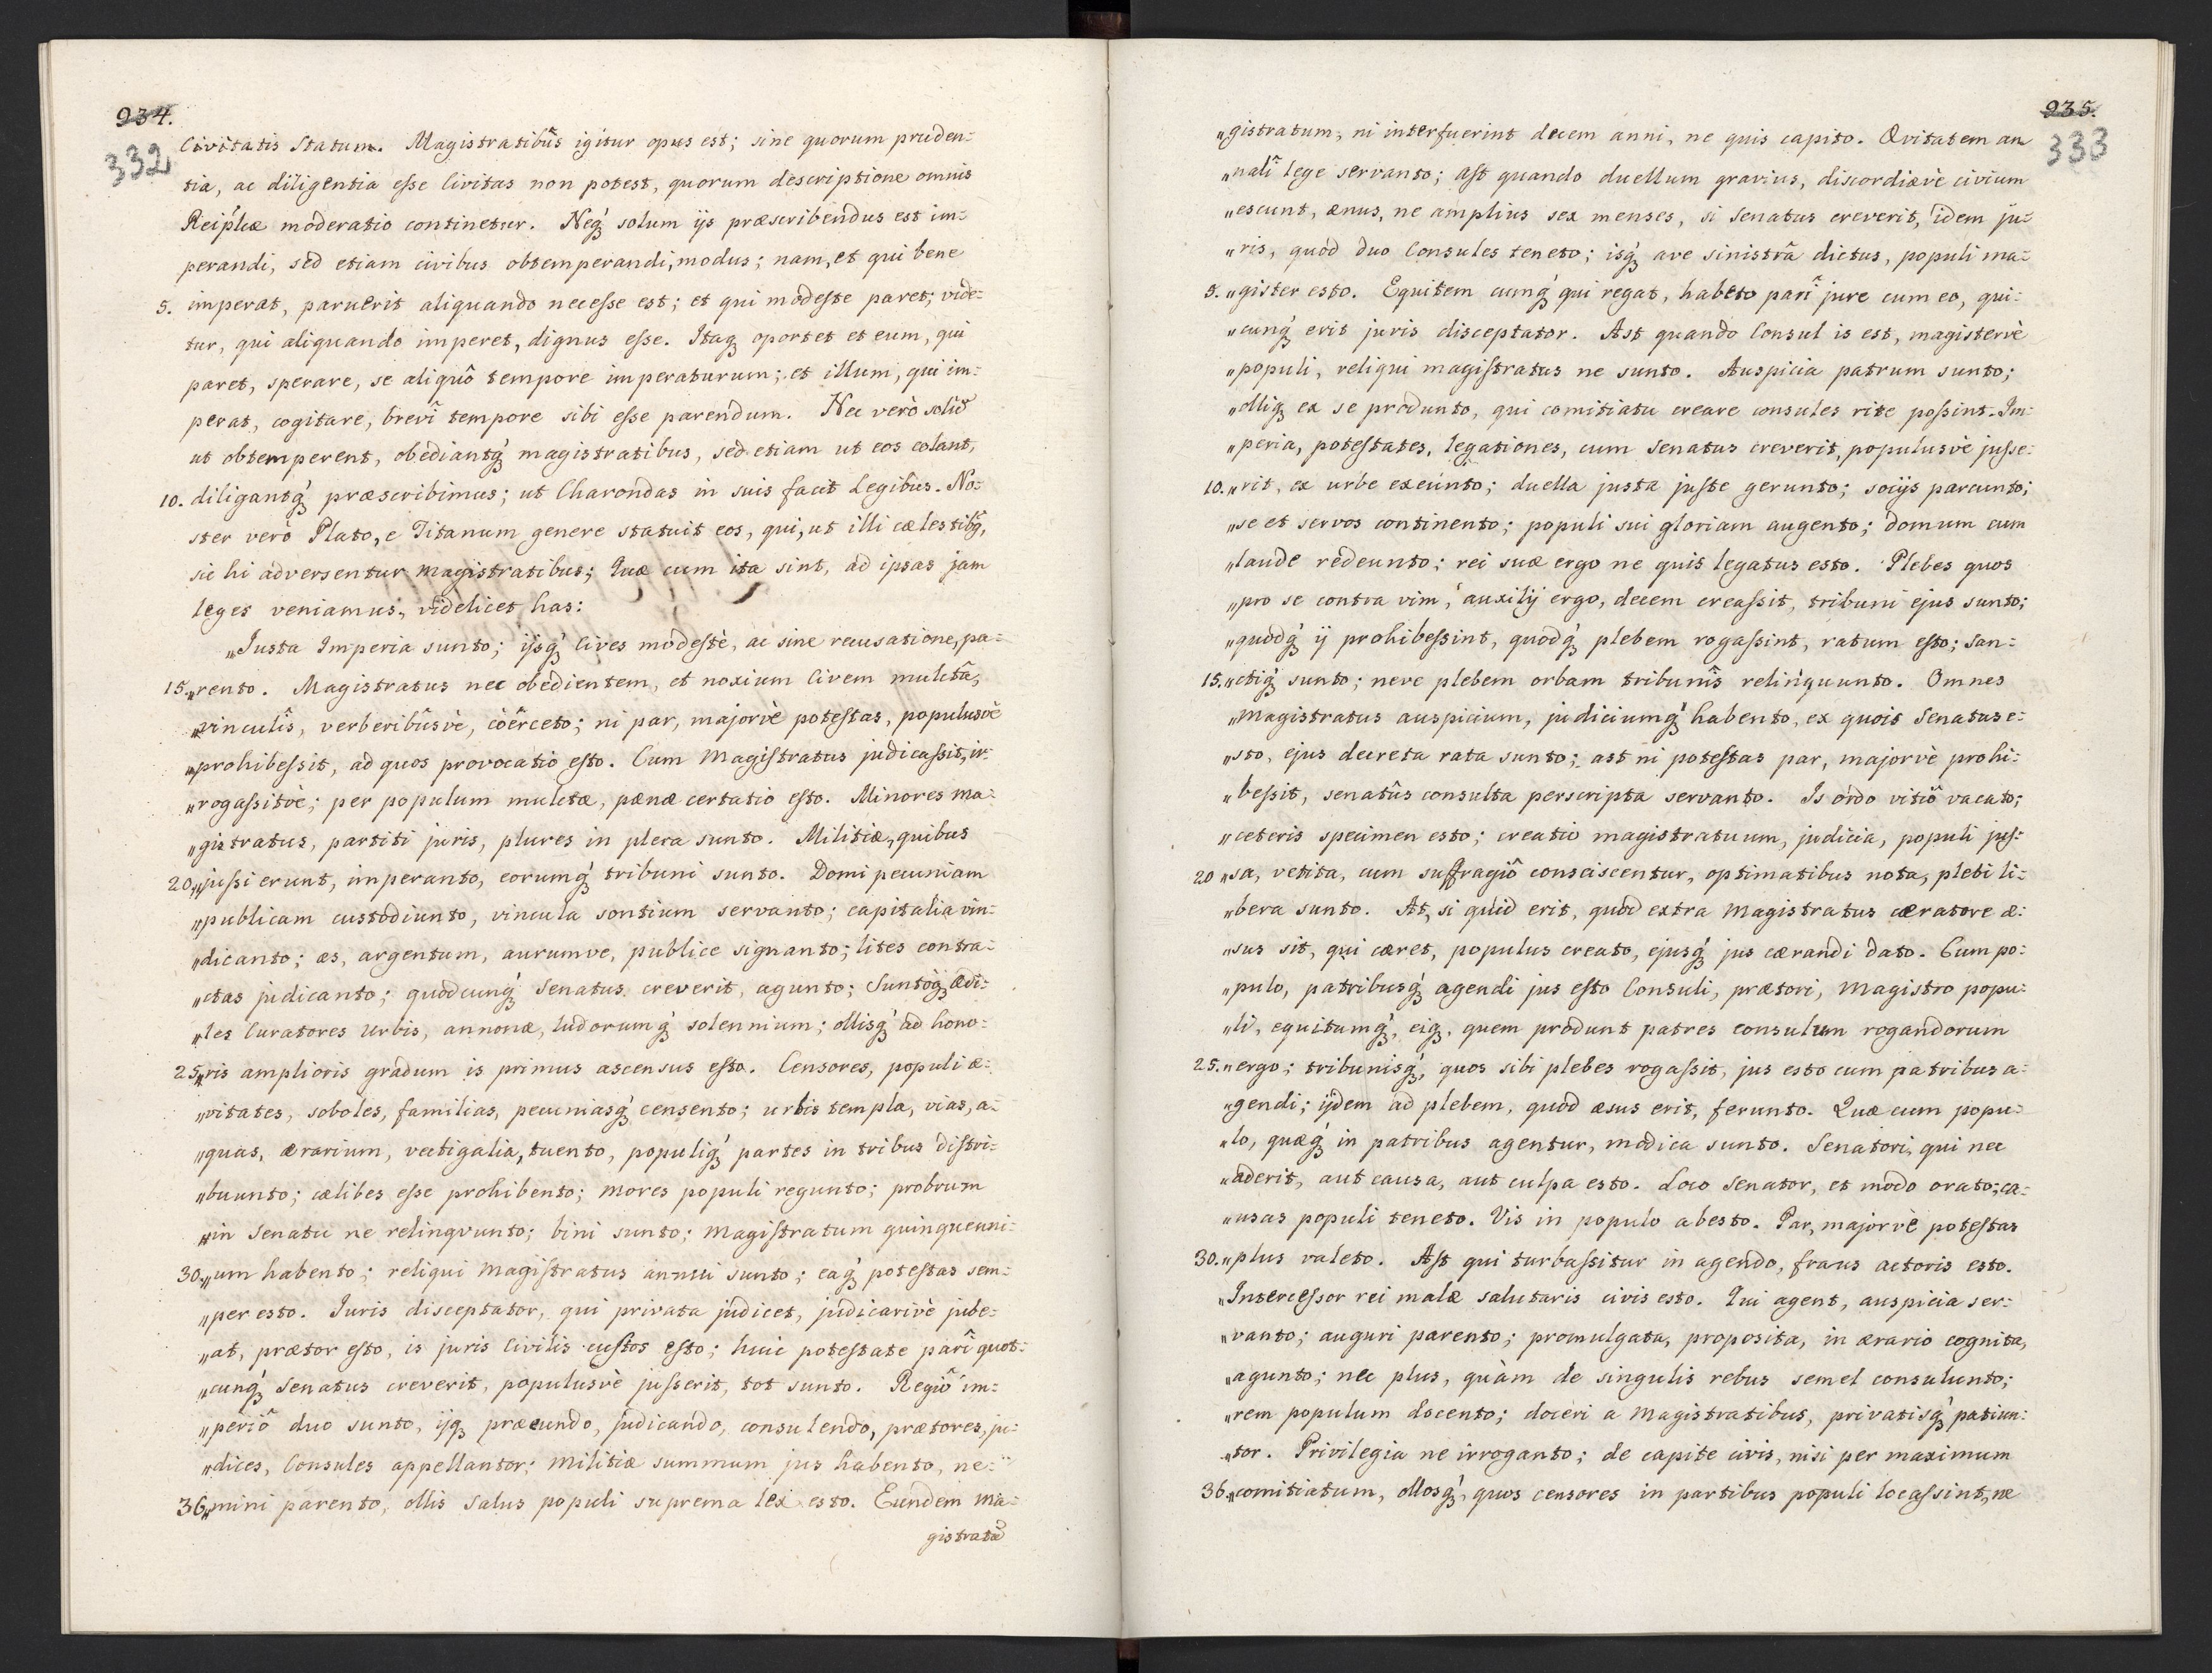 934.
332
Civitatis Statum. Magistratibûs igitur opus est; sine quorum pruden=
tia, ac diligentia esse Civitas non potest, quorum descriptione omnis
Reip͞licæ moderatio continetur. Neq́ solum ijs præscribendus est im=
perandi, sed etiam civibus obtemperandi, modus; nam, et qui bene
5. imperat, paruerit aliquando necesse est; et qui modeste paret; vide=
tur, qui aliquando imperet, dignus esse. Itaq oportet et eum, qui
paret, sperare, se aliquô tempore imperaturum; et illum, qui im=
perat, cogitare, brevî tempore sibi esse parendum. Nec verò solũ
ut obtemperent, obediantq́ magistratibus, sed etiam ut eos colant,
10. diligantq́ præscribimus; ut Charondas in suis facit Legibûs. No=
ster verò Plato, e Titanum genere statuit eos, qui, ut illi cælestibq,
sic hi adversentur magistratibus; Quæ cum ita sint, ad ipsas jam
leges veniamus, videlicet has:
„Iusta Imperia sunto; ijsq́ Cives modestè, ac sine recusatione, pa=
15. „rento. Magistratus nec obedientem, et noxium Civem mulctâ,
„vinculîs, verberibûsvè, coërceto; ni par, majorvè potestas, populusvè
„prohibessit, ad quos provocatio esto. Cum Magistratus judicassit, ir=
„rogassitvè; per populum mulctæ, pænæ certatio esto. Minores ma=
„gistratus, partiti juris, plures in plera sunto. Militiæ, quibus
20. „jussi erunt, imperanto, eorumq́ tribuni sunto. Domi pecuniam
„publicam custodiunto, vincula sontium servanto; capitalia vin=
„dicanto; æs, argentum, aurumve, publice signanto; lites contra=
„ctas judicanto; quodcunq́ Senatus creverit, agunto; Suntoq́ Ædi=
„les Curatores Urbis, annonæ, ludorumq́ solennium; ollisq́ ad hono=
25. „ris amplioris gradum is primus ascensus esto. Censores, populi æ=
„vitates, soboles, familias, pecuniasq́ censento; urbis templa, vias, a=
„quas, ærarium, vectigalia, tuento, populiq́ partes in tribus distri=
„buunto; cælibes esse prohibento; mores populi regunto; probrum
„in Senatu ne relinqvunto; bini sunto; magistratum quinquenni=
30. „um habento; reliqui magistratus annui sunto; eaq́ potestas sem=
„per esto. Iuris disceptator, qui privata judicet, judicarivè jube=
„at, prætor esto, is juris Civilis custos esto; huic potestate parî quot=
„cunq́ Senatus creverit, populusvè jusserit, tot sunto. Regiô im=
„periô duo sunto, ijq præeundo, judicando, consulendo, prætores, ju=
„dices, Consules appellantor; militiæ summum jus habento, ne=
36. „mini parento, ollis salus populi suprema lex esto. Eundem ma=
gistratũ
935.
333
„gistratum, ni interfuerint decem anni, ne quis capito. Ævitatem an
„nalî lege servanto; Ast quando duellum gravius, discordiævè civium
„escunt, ænus, ne amplius sex menses, si Senatus creverit, idem ju=
„ris, quod duo Consules teneto; isq́ ave sinistrâ dictus, populi ma=
5. „gister esto. Equitem cumq́ qui regat, habeto parî jure cum eo, qui=
„cunq́ erit juris disceptator. Ast quando Consul is est, magistervè
„populi, reliqui magistratus ne sunto. Auspicia patrum sunto;
„olliq ex se produnto, qui comitiatu creare consules rite possint. Im=
„peria, potestates, legationes, cum Senatus creverit, populusvè jusse=
10. „rit, ex urbe exeunto; duella justa juste gerunto; socijs parcunto;
„se et servos continento; populi sui gloriam augento; domum cum
„laude redeunto; rei suæ ergo ne quis legatus esto. Plebes quos
„pro se contra vim, auxilij ergo, decem creassit, tribuni ejus sunto;
„quodq́ ij prohibessint, quodq́ plebem rogassint, ratum esto; San=
15. „ctiq́ sunto; neve plebem orbam tribunîs relinquunto. Omnes
„magistratus auspicium, judiciumq́ habento, ex quois Senatus e=
„sto, ejus decreta rata sunto; ast ni potestas par, majorvè prohi=
„bessit, senatûs consulta perscripta servanto. Is ordo vitiô vacato;
„ceteris specimen esto; creatio magistratuum, judicia, populi jus=
20 „sa, vetita, cum suffragiô consciscentur, optimatibus nota, plebi li=
„bera sunto. At, si quid erit, quod extra magistratus cæratore æ=
„sus sit, qui cæret, populus creato, ejusq́ jus cærandi dato. Cum po=
„pulo, patribusq́ agendi jus esto Consuli, prætori, magistro popu=
„li, equitumq́, eiq, quem produnt patres consulum rogandorum
25. „ergo; tribunisq́, quos sibi plebes rogassit, jus esto cum patribus a=
„gendi; ijdem ad plebem, quod æsus erit, ferunto. Quæ cum popu=
„lo, quæq́ in patribus agentur, modica sunto. Senatori, qui nec
„aderit, aut causa, aut culpa esto. Loco Senator, et modo orato; ca=
„usas populi teneto. Vis in populo abesto. Par, majorvè potestas
30. „plus valeto. Ast qui turbassitur in agendo, fraus actoris esto.
„Intercessor rei malæ salutaris civis esto. Qui agent, auspicia ser=
„vanto; auguri parento; promulgata, proposita, in ærario cognita,
„agunto; nec plus, quàm de singulis rebus semel consulunto;
„rem populum docento; doceri a magistratibus, privatisq́ patiun=
„tor. Privilegia ne irroganto; de capite civis, nisi per maximum
36. „comitiatum, ollosq́, quos censores in partibus populi locassint, ne